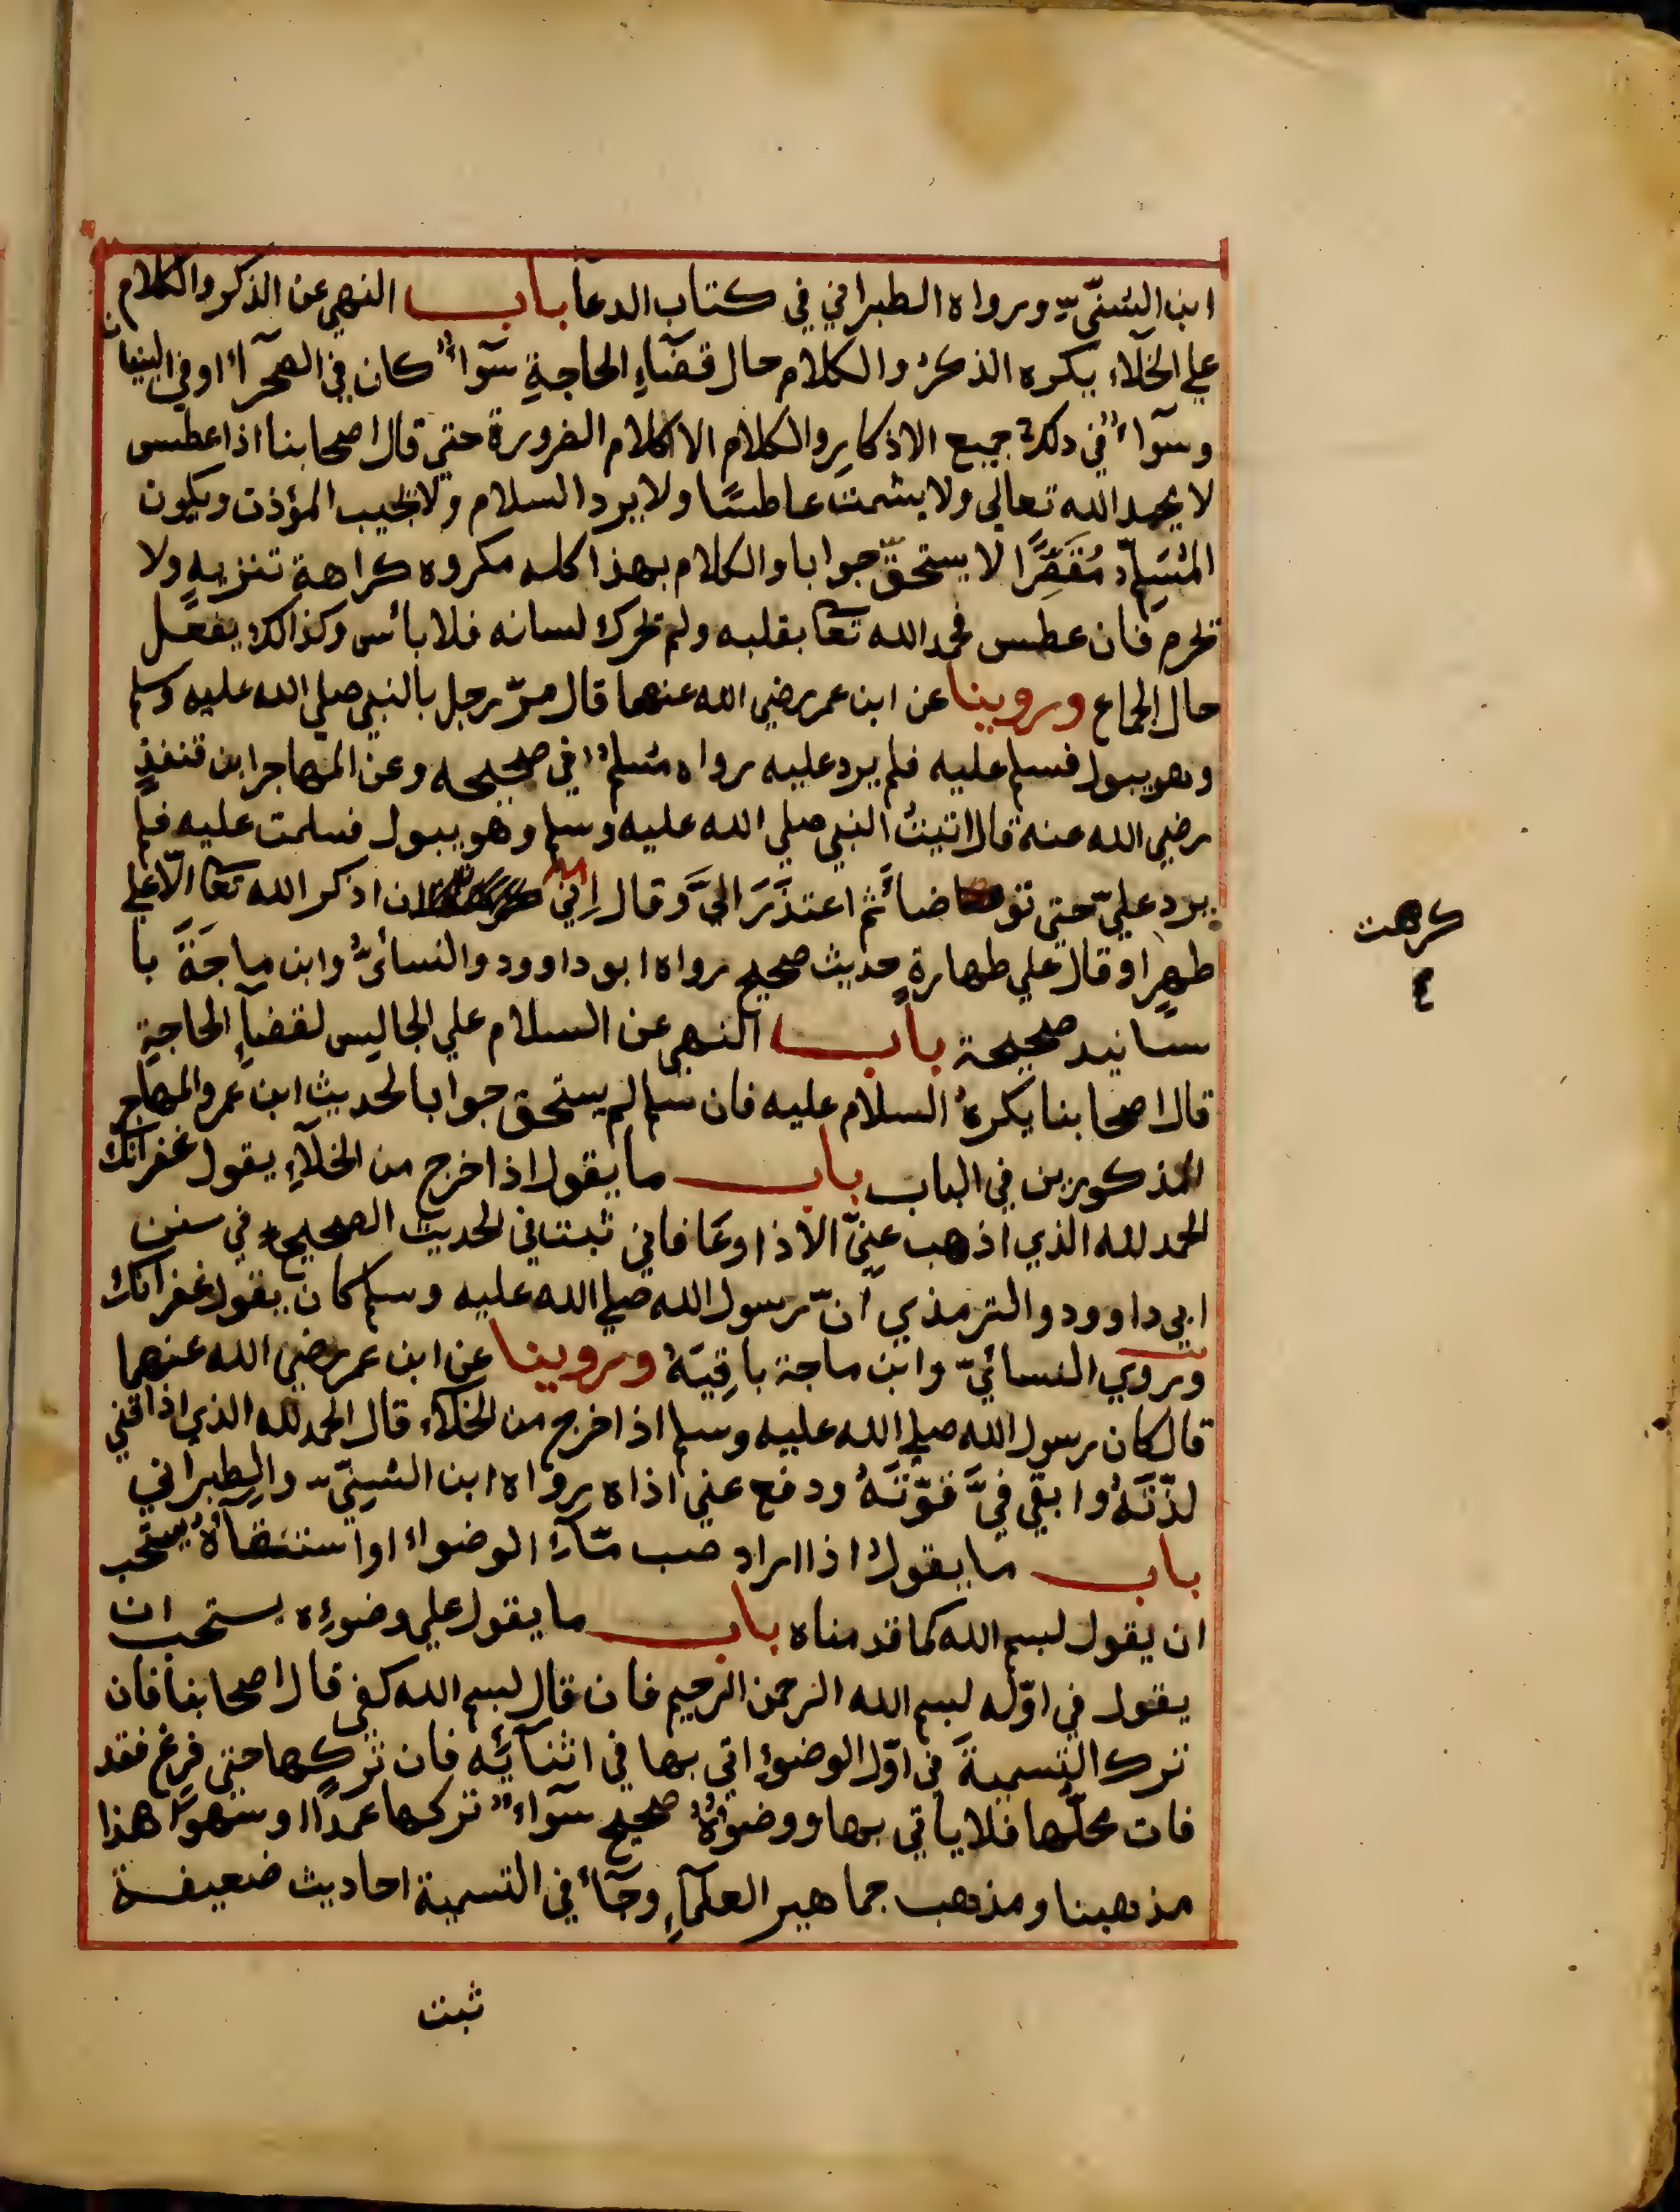 ابن السُّنِّيّ ورواه الطبراني في كتاب الدعآ باب النهي عن الذكر والكلام
علي الخلآء يكره الذكرُ والكلام حال قضآءِ الحاجةِ سوآءٌ كان في الصحرآءِ اوفي البنيان
وسوآءٌ في ذلك جميع الاذكارِ والكلام الا كلام الضرورة حتي قال اصحابنا اذا عطس
لا يحمد الله تعالي ولا يشمت عاطسًا ولا يرد السلام ولا يجيب المؤذن ويكون
المُسَلِّم مُقَصِّرًا لا يستحقّ جوابا والكلام بهذا كله مكروه كراهة تنزيهٍ ولا
تحرم فان عطس فحمد الله تعا بقلبه ولم يحرك لسانه فلا بأس وكذالك يفعل
حال الجماع وروينا عن ابن عمر رضي الله عنهما قال مرّ رجل بالنبي صلي الله عليه وسلم
وهو يبول فسلم عليه فلم يرد عليه رواه مسلمٌ في صحيحه وعن المهاجر ابن قنفذٍ
رضي الله عنه قال اتيتُ النبي صلي الله عليه وسلم وهو يبول فسلمت عليه فلم
يرد عليّ حتي توضأ ثم اعتذَرَ اليَّ وقال اِني ان اذكر الله تعا الّا علي
كرهت
٤
طهرٍ اوقال علي طهارةٍ حديث صحيح رواه ابو داوود والنسائيُّ وابن ماجَةَ با
سانيد صحيحة باب النهي عن السلام علي الجاليس لقضآءِ الحاجةِ
قال اصحابنا يكرهُ السلام عليه فان سلم لم يستحق جوابا لحديث ابن عمر والمهاجر
المذكورين في الباب باب ما يقول اذا خرج من الخلآءِ يقول غفرانك
الحمد لله الذي اذهب عنِيّ الاذا وعَافاني ثبت في الحديث الصحيح في سنن
ابي داوود والترمذي انّ رسول الله صلي الله عليه وسلم كان يقول غفرانك
وروي النسائيّ وابن ماجة باقِيَهُ وروينا عن ابن عمر رضي الله عنهما
قال كان رسول الله صلي الله عليه وسلم اذا خرج من الخلآء قال الحمد لله الذي اذاقني
لذّتَهُ وابقي فيَّ قوّتَهُ ودفع عني اذاه رواه ابن السُّنِيّ والطبراني
باب ما يقول اذا اراد صب مآءِ الوضواء او استسقآهُ يستحب
ان يقول لبسم الله كما قدمناه باب ما يقول علي وضوءِه يستحب ان
يقول في اوّله لبسم الله الرحمن الرحيم فان قال لبسم الله كفي قال اصحابنا فان
ترك التسميةَ في اوّل الوضوءِ اتي بها في اثنآئِه فان تركها حتي فرغ فقد
فات محلّها فلا ياتي بها ووضوءُهُ صحيح سوآءٌ تركها عمدًا او سهوًا هذا
مذهبنا ومذهب جماهير العلمآءِ وجآءَ في التسمية احاديث ضعيفة
ثبت